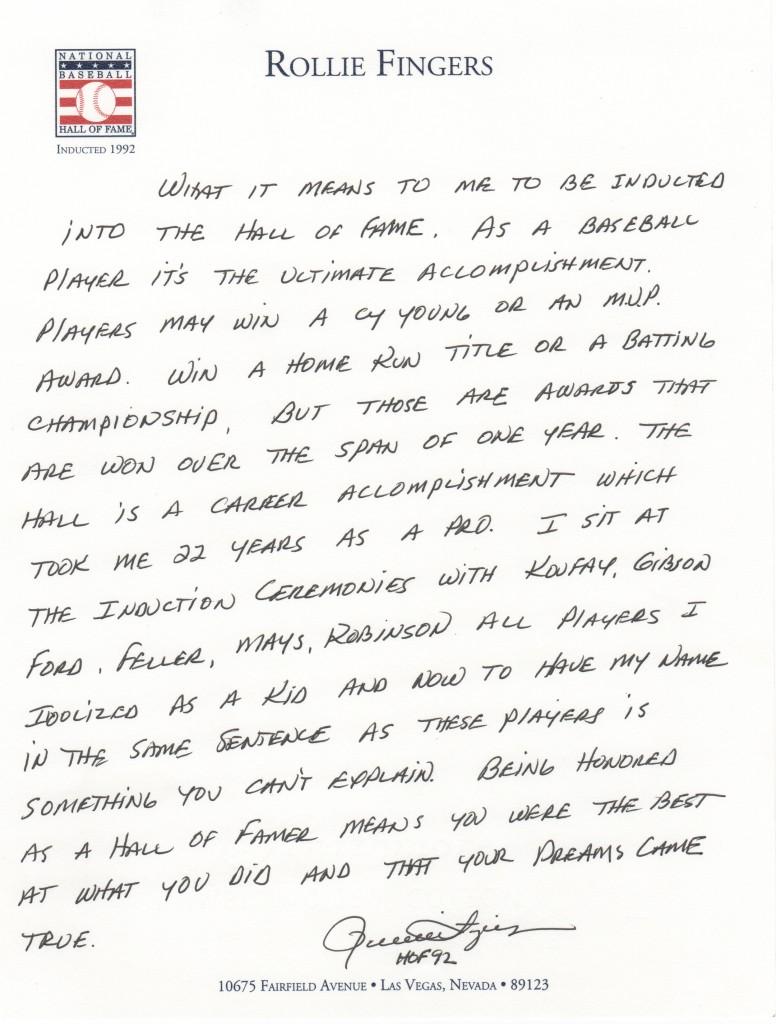 NATIONAL
BASEBALL
HALL OF FAME
INDUCTED 1992
ROLLIE FINGERS
WHAT IT MEANS TO ME TO BE INDUCTED
INTO THE HALL OF FAME. AS A BASEBALL
PLAYER IT'S THE ULTIMATE ACCOMPLISHMENT.
PLAYERS MAY WIN A CY YOUNG OR AN M.V.P.
AWARD. WIN A HOME RUN TITLE OR A BATTING
CHAMPIONSHIP, BUT THOSE ARE AWARDS THAT
ARE WON OVER THE SPAN OF ONE YEAR. THE
HALL IS A CAREER ACCOMPLISHMENT WHICH
TOOK ME 22 YEARS AS A PRO. I SIT AT
THE INDUCTION CEREMONIES WITH KOUFAX, GIBSON
FORD, FELLER, MAYS, ROBINSON ALL PLAYERS I
IDOLIZED AS A KID AND NOW TO HAVE MY NAME
IN THE SAME SENTENCE AS THESE PLAYERS IS
SOMETHING YOU CAN'T EXPLAIN. BEING HONORED
AS A HALL OF FAMER MEANS YOU WERE THE BEST
AT WHAT YOU DID AND THAT YOUR DREAMS CAME
TRUE.
Rollie Fingers
HOF 92
10675 FAIRFIELD AVENUE • LAS VEGAS, NEVADA • 89123